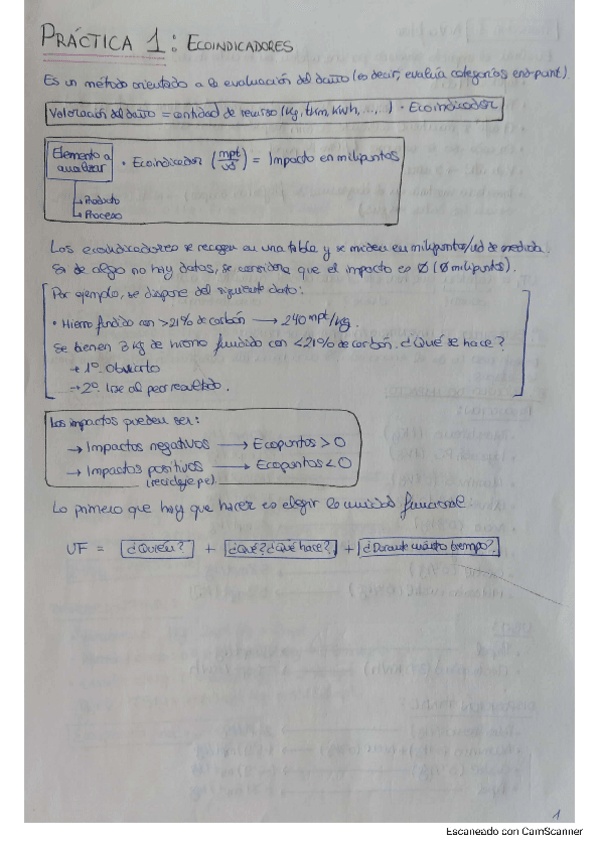 PRÁCTICA 1: ECOINDICADORES
Es un método orientado a la evaluación del daño (es decir, evalúa categorías end-point)
Valoración del daño = cantidad de recurso (kg, tkm, kWh, ..., ) · Ecoindicador
Elemento a analizar · Ecoindicador (mpt/) = Impacto en milipuntos
↳ Producto
↳ Proceso
Los ecoindicadores se recogen en una tabla y se miden en milipuntos/ud de medida.
Si de algo no hay datos, se considera que el impacto es Ø (Ø milipuntos).
Por ejemplo, se dispone del siguiente dato:
• Hierro fundido con >21% de carbón → 240 mpt/kg.
Se tienen 3 kg de hierro fundido con <21% de carbón. ¿Qué se hace?
→ 1º. Obviarlo
→ 2º. Irse al peor resultado.
Los impactos pueden ser:
→ Impactos negativos → Ecopuntos > 0
→ Impactos positivos → Ecopuntos < 0
(reciclaje p.e.)
Lo primero que hay que hacer es elegir la unidad funcional:
UF = ¿Quién? + ¿Qué? ¿Qué hace? + ¿Durante cuánto tiempo?
1
Escaneado con CamScanner